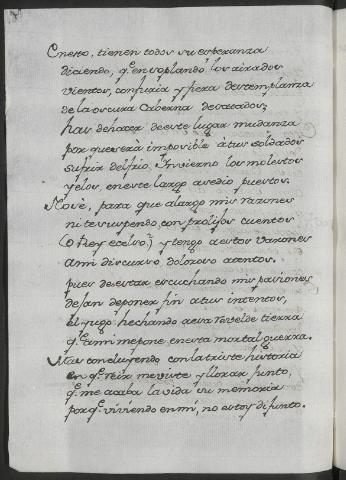 Enesto, tienen todos su esperanza
diciendo, q.e en soplando los airados
vientos, con furia y fiera destemplanza
de la oscura Caberna desatados,
has de hacer de este lugar mudanza
por que será imposible à tus soldados
sufrir del frio Invierno los molestos
yelos, en este largo asedio puestos.
No sè, para que alargo mis razones
ni te suspendo con prolijos cuentos
(o Rey ecelso) y tengo a estos varones
a mi discurso doloroso atentos.
pues de estar escuchando mis pasiones
dejan de poner fin a tus intentos,
el yugo hechando a esa revelde tierra
q.e a mi me pone en esta mortal guerra.
Mas concluyendo con la triste historia
en q.e reir me viste y llorar junto,
q.e me acaba la vida su memoria
por q.e viviendo en mi, no estoy difunto.